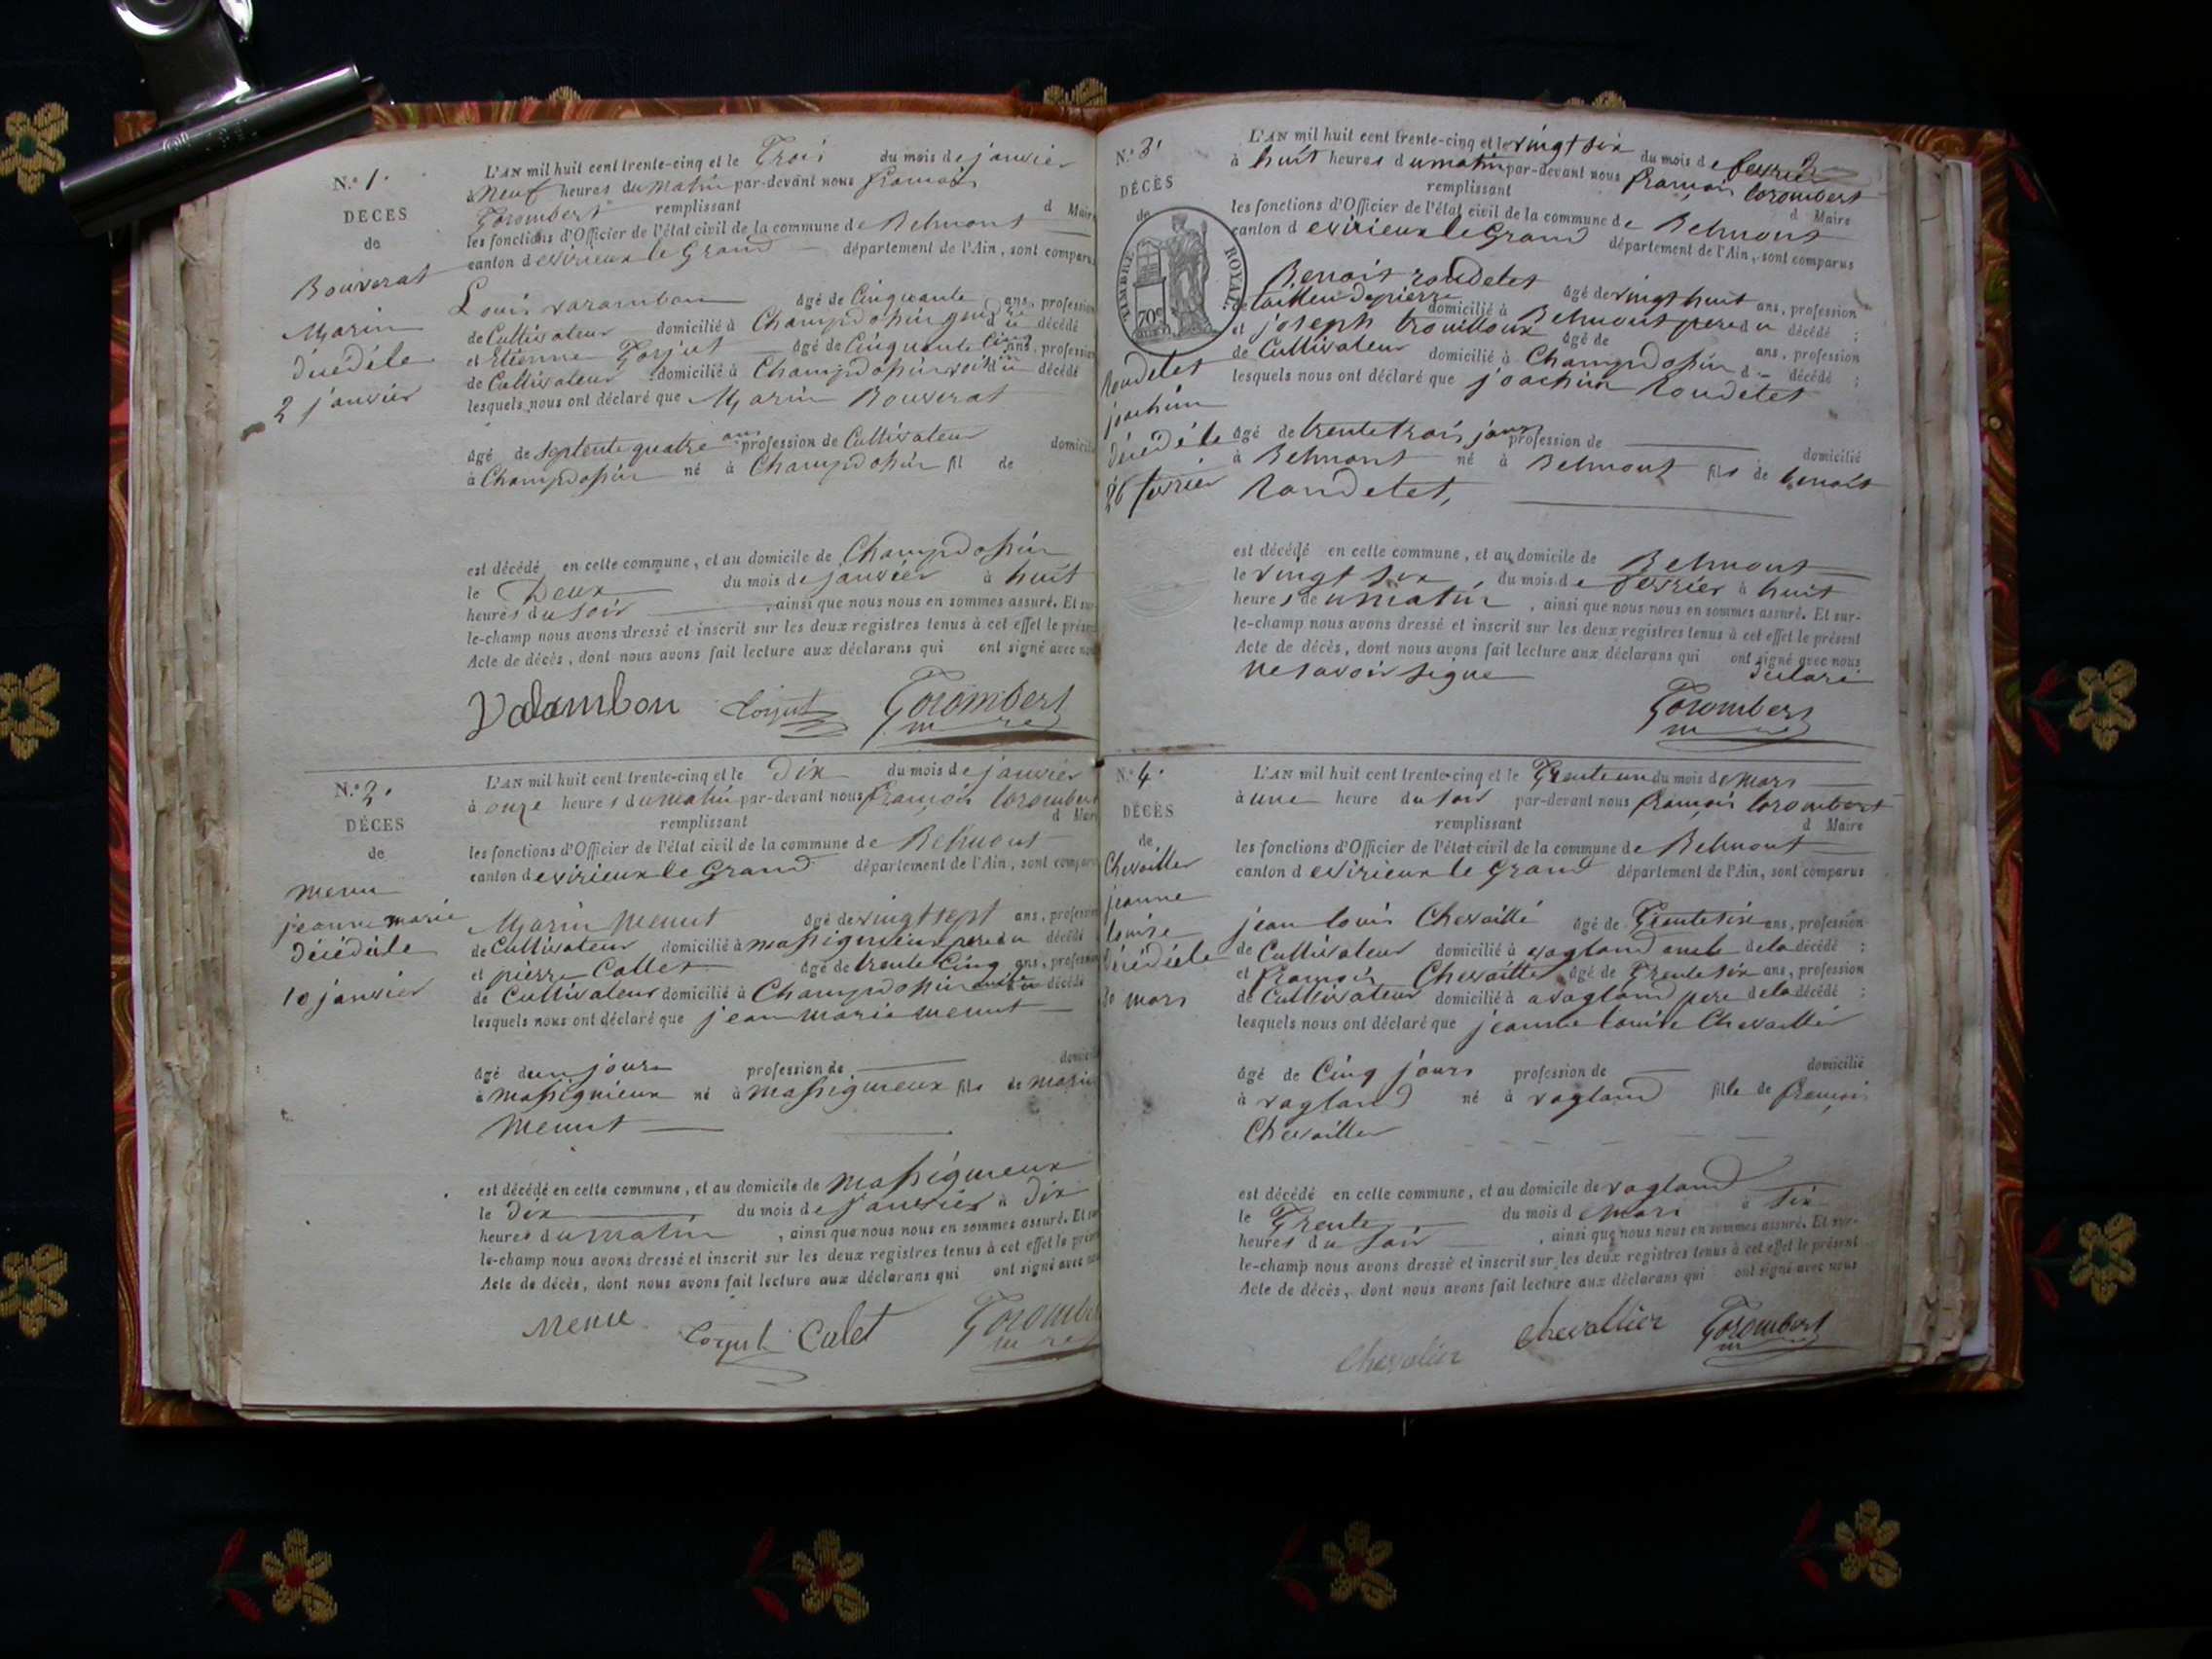 N.° 1.
DÉCES
de
Bouverat
Marin
décédé le
2 janvier
L'AN mil huit cent trente-cinq et le Trois du mois de janvier
à neuf heures du matin par-devant nous francois
Gorombert remplissant d Maire
les fonctions d'Officier de l'état civil de la commune de Belmont
canton d evirieux le Grand département de l'Ain, sont comparus
Louis varambon âgé de Cinquante ans, profession
de Cultivateur domicilié à Champdossin gendre du décédé
et Etienne Gorjut âgé de Cinquante Cinq ans, profession
de Cultivateur domicilié à Champdossin voisin du décédé
lesquels nous ont déclaré que Marin Bouverat
âgé de septente quatre ans profession de Cultivateur domicilié
à Champdossin né à Champdossin fil de
est décédé en cette commune, et au domicile de Champdossin
le Deux du mois de janvier à huit
heures du soir , ainsi que nous nous en sommes assuré. Et sur-
le-champ nous avons dressé et inscrit sur les deux registres tenus à cet effet le présent
Acte de décès, dont nous avons fait lecture aux déclarans qui ont signé avec nous
Valambon Corjut Gorombert
maire
N.° 2.
DÉCES
de
menu
jeanne marie
Décédé le
10 janvier
L'AN mil huit cent trente-cinq et le Dix du mois de janvier
à onze heures du matin par-devant nous françois Corombert
remplissant d Maire
les fonctions d'Officier de l'état civil de la commune de Belmont
canton d evirieux le Grand département de l'Ain, sont comparus
Marin Menut âgé de vingt sept ans, profession
de Cultivateur domicilié à massignieux pere du décédé
et pierre Collet âgé de trente Cinq ans, profession
de Cultivateur domicilié à Champdossin décédé
lesquels nous ont déclaré que jean marie menut
âgé d un jours profession de domicilié
à massignieux né à massignieux fils de marin
Menut
est décédé en cette commune, et au domicile de massignieux
le Dix du mois de janvier à Dix
heures du matin , ainsi que nous nous en sommes assuré. Et sur-
le-champ nous avons dressé et inscrit sur les deux registres tenus à cet effet le présent
Acte de décès, dont nous avons fait lecture aux déclarans qui ont signé avec nous
Menu Corjut Calet Gorombert
maire
N.° 3.
DÉCÈS
de
TIMBRE ROYAL
70c
Roudetet
joachim
décédé le
26 fevrier
L'AN mil huit cent trente-cinq et le vingt six du mois de fevrier
à huit heures du matin par-devant nous françois Corombert
remplissant d Maire
les fonctions d'Officier de l'état civil de la commune de Belmont
canton d evirieux le Grand département de l'Ain, sont comparus
Benoit roudetet âgé de vingt huit ans, profession
de tailleur de pierre domicilié à Belmont pere du décédé ;
et joseph trouilloux âgé de ans, profession
de Cultivateur domicilié à Champdossin d décédé ;
lesquels nous ont déclaré que joachim Roudetet
âgé de trente trois jours profession de domicilié
à Belmont né à Belmont fils de benoit
Roudetet,
est décédé en cette commune, et au domicile de Belmont
le vingt six du mois de fevrier à huit
heures de umatin , ainsi que nous nous en sommes assuré. Et sur-
le-champ nous avons dressé et inscrit sur les deux registres tenus à cet effet le présent
Acte de décès, dont nous avons fait lecture aux déclarans qui ont signé avec nous
ne savoir signe déclaré
Gorombert
maire
N.° 4.
DÉCÈS
de
Chevaillier
jeanne
louise
décédé le
30 mars
L'AN mil huit cent trente-cinq et le Trente un du mois de mars
à une heure du soir par-devant nous françois Corombert
remplissant d Maire
les fonctions d'Officier de l'état civil de la commune de Belmont
canton d evirieux le Grand département de l'Ain, sont comparus
jean louis Chevaillé âgé de Trente six ans, profession
de Cultivateur domicilié à vogland oncle de la décédé ;
et françois Chevaillier âgé de Trente six ans, profession
de Cultivateur domicilié à avogland pere de la décédé ;
lesquels nous ont déclaré que jeanne louise Chevaillier
âgé de Cinq jours profession de domicilié
à vogland né à vogland fille de françois
Chevaillier
est décédé en cette commune, et au domicile de vogland
le Trente du mois d emars à six
heures du soir , ainsi que nous nous en sommes assuré. Et sur-
le-champ nous avons dressé et inscrit sur les deux registres tenus à cet effet le présent
Acte de décès, dont nous avons fait lecture aux déclarans qui ont signé avec nous
Chevalier Chevallier Gorombert
maire